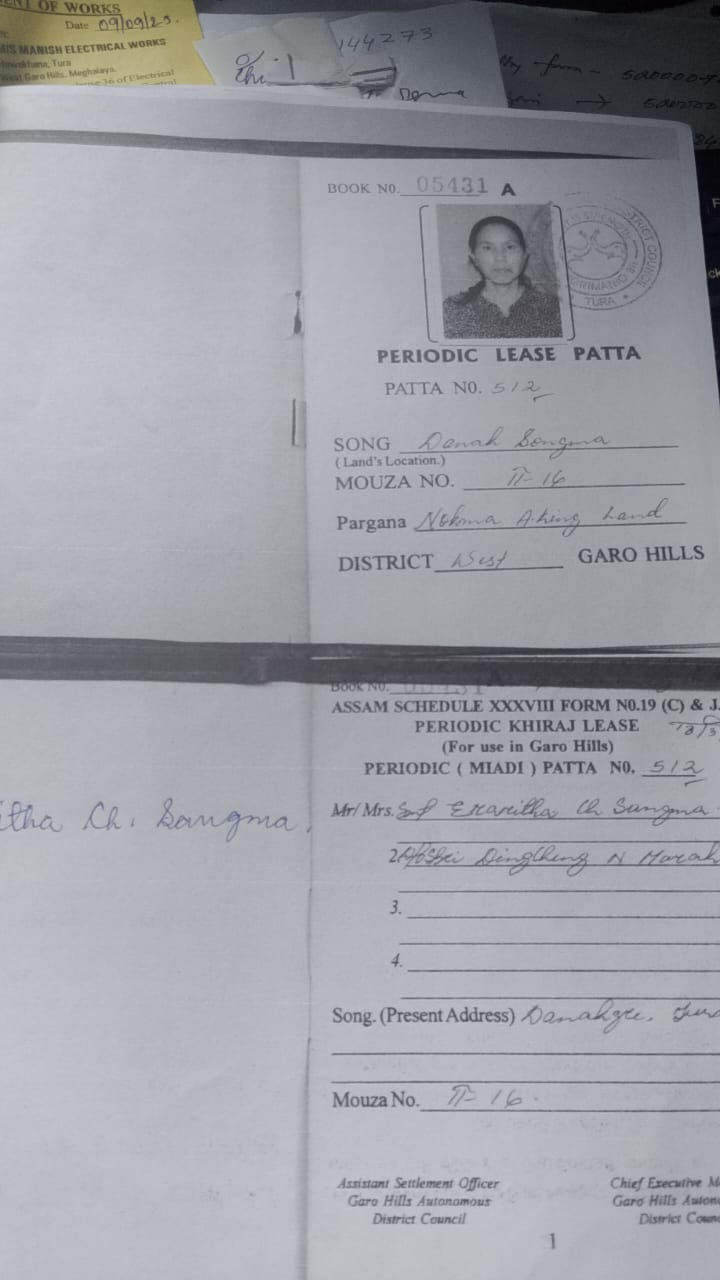 OF WORKS
Date 09/09/25.
M/S MANISH ELECTRICAL WORKS
Tura
West Garo Hills, Meghalaya.
36 of Electrical
144273
BOOK N0. 05431 A
DISTRICT COUNCIL
TURA
PERIODIC LEASE PATTA
PATTA N0. 512
SONG Danah Songma
( Land's Location.)
MOUZA NO. II-16
Pargana Nokma A.king Land
DISTRICT West GARO HILLS
Book No. 05431 A
ASSAM SCHEDULE XXXVIII FORM N0.19 (C) & J.
PERIODIC KHIRAJ LEASE
(For use in Garo Hills)
PERIODIC ( MIADI ) PATTA N0. 512
itha Ch. Sangma.
Mr/Mrs. Ch Sangma
2. Dingcheng N Marak
3.
4.
Song. (Present Address) Danahgre, Tura
Mouza No. II-16.
Assistant Settlement Officer
Garo Hills Autonomous
District Council
Chief Executive M
Garo Hills Auton
District Coun
1